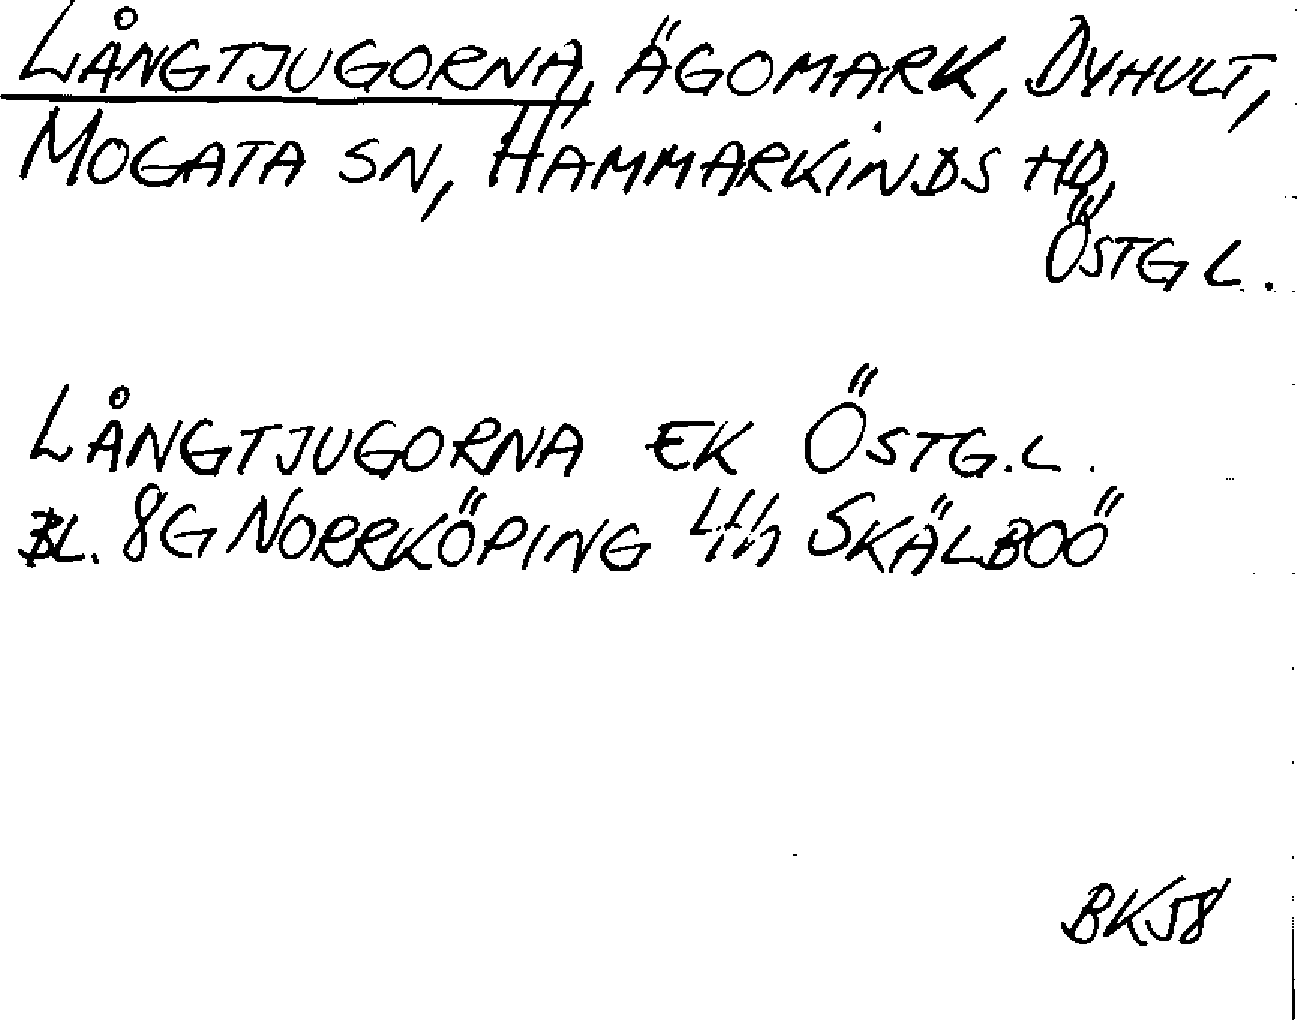 LÅNGTJUGORNA, ÄGOMARK, DYHULT,
MOGATA SN, HAMMARKINDS HD,
ÖSTG L.
LÅNGTJUGORNA EK ÖSTG.L.
BL. 8G NORRKÖPING 4h SKÄLBOÖ
BK58